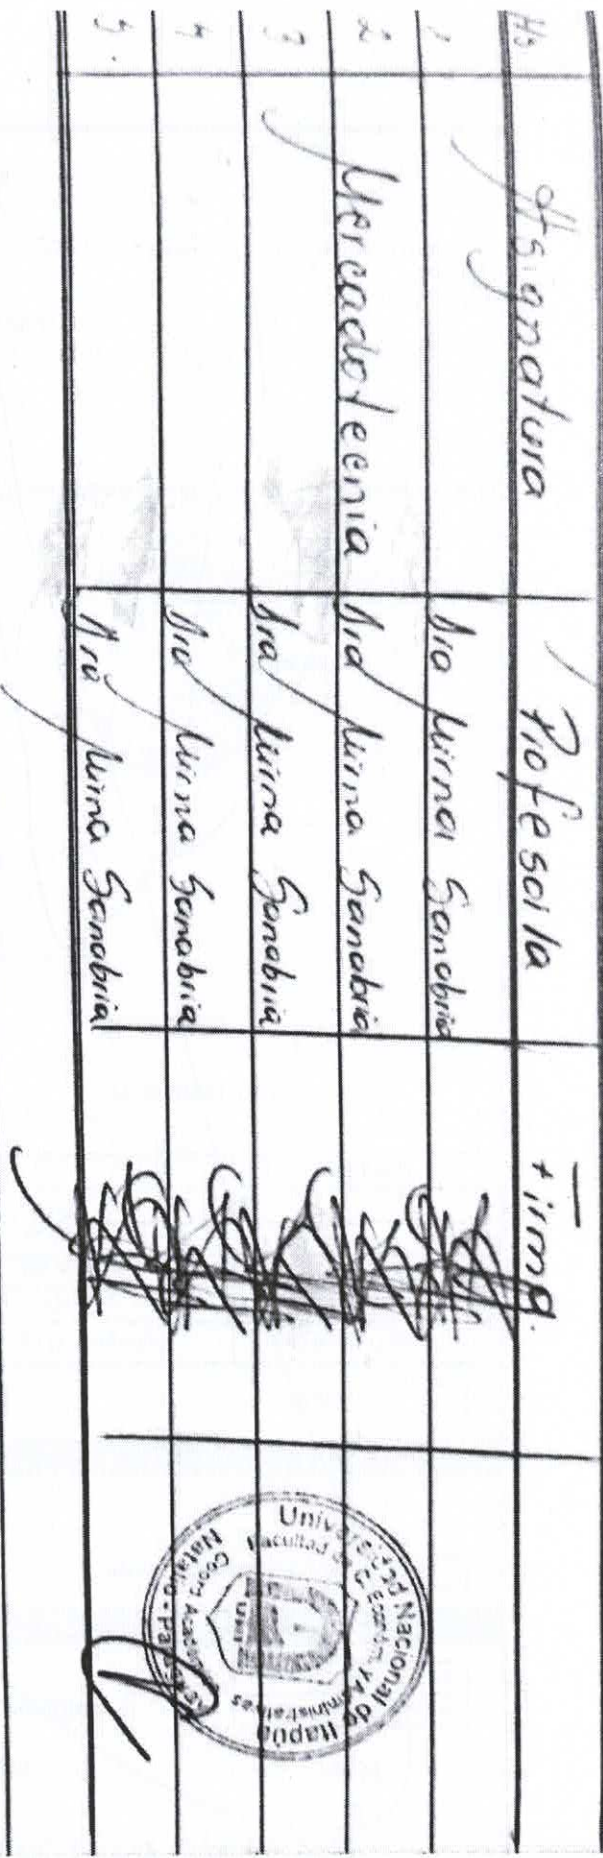 Hs Asignatura Profesor/a Firma.
1 Dra Mirna Sanabria
2 Mercadotecnia Dra Mirna Sanabria
3 Dra Mirna Sanabria
4 Dra Mirna Sanabria
5. Dra Mirna Sanabria
Universidad Nacional de Itapúa
Facultad de C. Económ. y Administrativas
UNI
Coord Academ
Natalio - Para